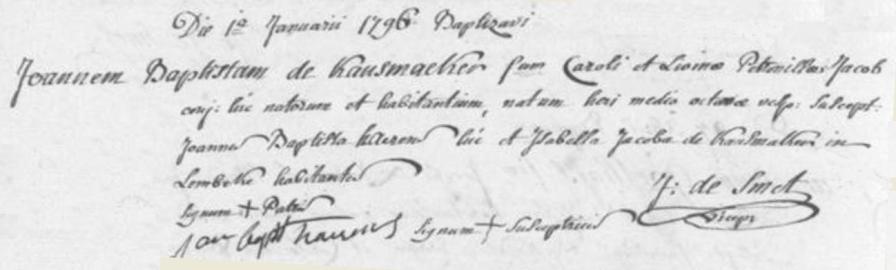 Die 1a Januarii 1796 Baptizavi
Joannem Baptistam de Kausmaeker fum Caroli et Livinæ Petronillæ Jacob
conj: hic natorum et habitantium, natum heri media octavæ vesp: suscept:
Joannes Baptista hic et Isabella Jacoba de Kausmaeker in
Lembeke habitantes
Signum + Patris J: de Smet
jan bapt Signum + Susceptricis